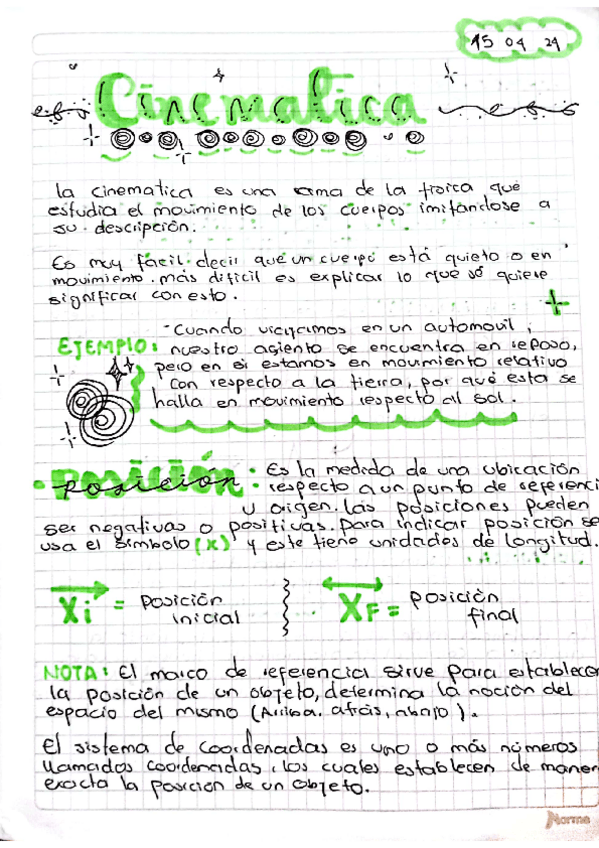 15 04 24
Cinematica
la cinematica es una rama de la fisica que
estudia el movimiento de los cuerpos imitandose a
su descripción.
Es muy facil decir que un cuerpo está quieto o en
movimiento. más dificil es explicar lo que se quiere
significar con esto.
EJEMPLO: - Cuando viajamos en un automovil,
nuestro asiento se encuentra en reposo,
pero en si estamos en movimiento relativo
con respecto a la tierra, por qué esta se
halla en movimiento respecto al sol.
• posición • Es la medida de una ubicación
respecto a un punto de referenci
u origen. las posiciones pueden
ser negativas o positivas. Para indicar posición se
usa el simbolo (x) y este tiene unidades de longitud.
Xi = posición inicial
XF = posición final
NOTA: El marco de referencia sirve para establecer
la posición de un objeto, determina la noción del
espacio del mismo (Arriba, atrás, abajo).
El sistema de coordenadas es uno o más números
llamados coordenadas, los cuales establecen de maner
exacta la posición de un objeto.
Norma